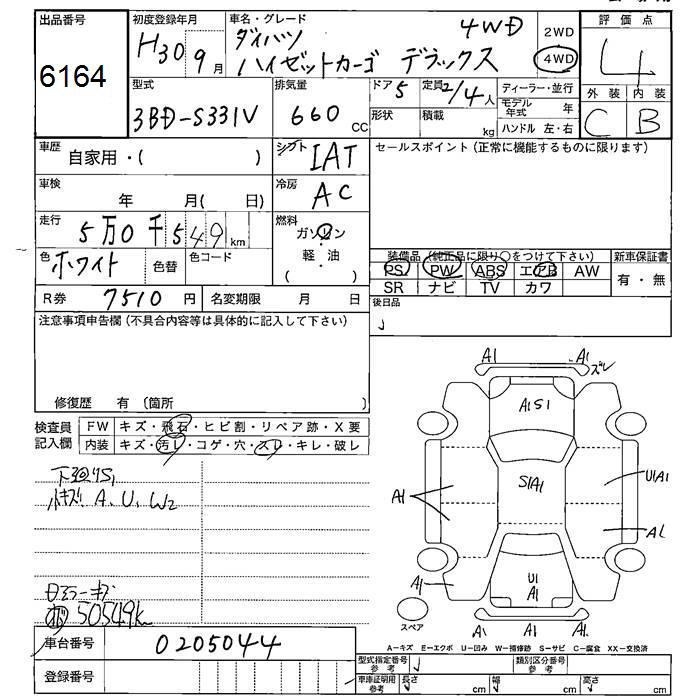 出品番号
6164
初度登録年月
H30 9月
車名・グレード
4WD
ダイハツ
ハイゼットカーゴ デラックス
2WD
4WD
評価点
4
外装 内装
C B
型式
3BD-S331V
排気量
660 cc
ドア 5
定員 2/4人
形状
積載 kg
ディーラー・並行
モデル年式 年
ハンドル 左・右
車歴
自家用・( )
シフト IAT
セールスポイント(正常に機能するものに限ります)
車検
年 月( 日)
冷房 AC
走行
5万0千549km
燃料
ガソリン
・
軽・油
( )
色 ホワイト 色替 色コード
装備品(純正品に限り○をつけて下さい)
新車保証書
PS PW ABS エアB AW
SR ナビ TV カワ
有・無
R券 7510円 名変期限 月 日
後日品
注意事項申告欄(不具合内容等は具体的に記入して下さい)
修復歴 有(箇所 )
検査員記入欄
FW キズ・飛石・ヒビ割・リペア跡・X要
内装 キズ・汚レ・コゲ・穴・スレ・キレ・破レ
下廻りS1
小キズ A、U、W2
50549k
車台番号 0205044
登録番号
A1 A1 ズレ
A1S1
S1A1
U1A1
A1
A1
U1
A1
A1 A1 A1
スペア
A－キズ E－エクボ U－凹み W－補修跡 S－サビ C－腐食 XX－交換済
型式指定番号 参考
類別区分番号 参考
車庫証明用 参考
長さ cm 幅 cm 高さ cm